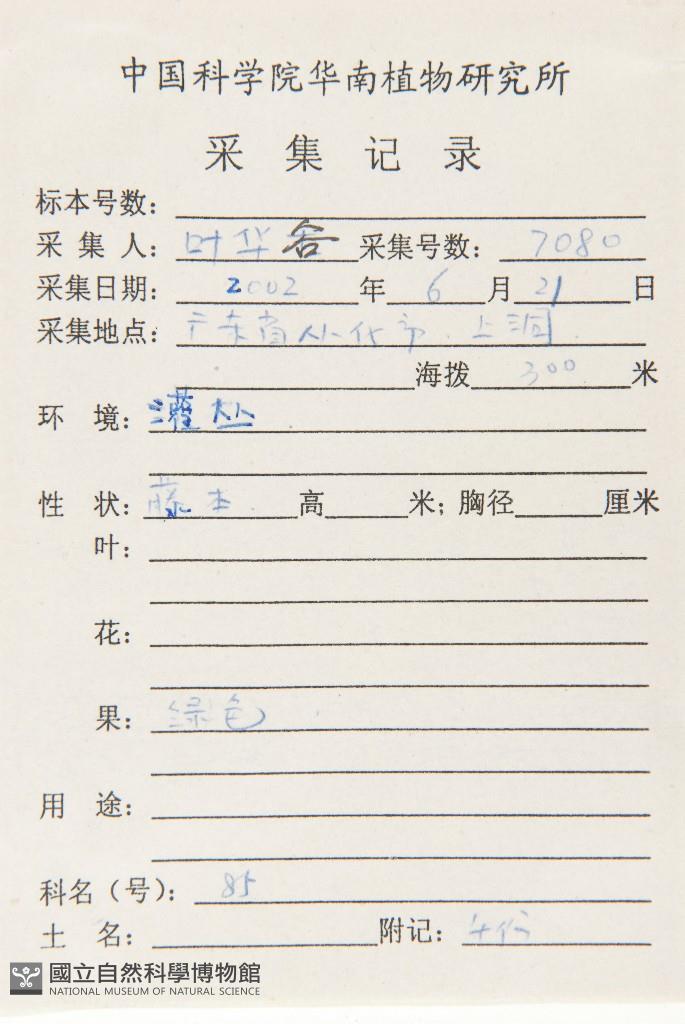 中国科学院华南植物研究所
采 集 记 录
标本号数：
采 集 人： 叶华谷 采集号数： 7080
采集日期： 2002 年 6 月 21 日
采集地点： 广东省从化市 上洞
海拨 300 米
环 境： 灌丛
性 状： 藤本 高 米；胸径 厘米
叶：
花：
果： 绿色
用 途：
科名（号）： 85
土 名： 附记： 份
國立自然科學博物館
NATIONAL MUSEUM OF NATURAL SCIENCE